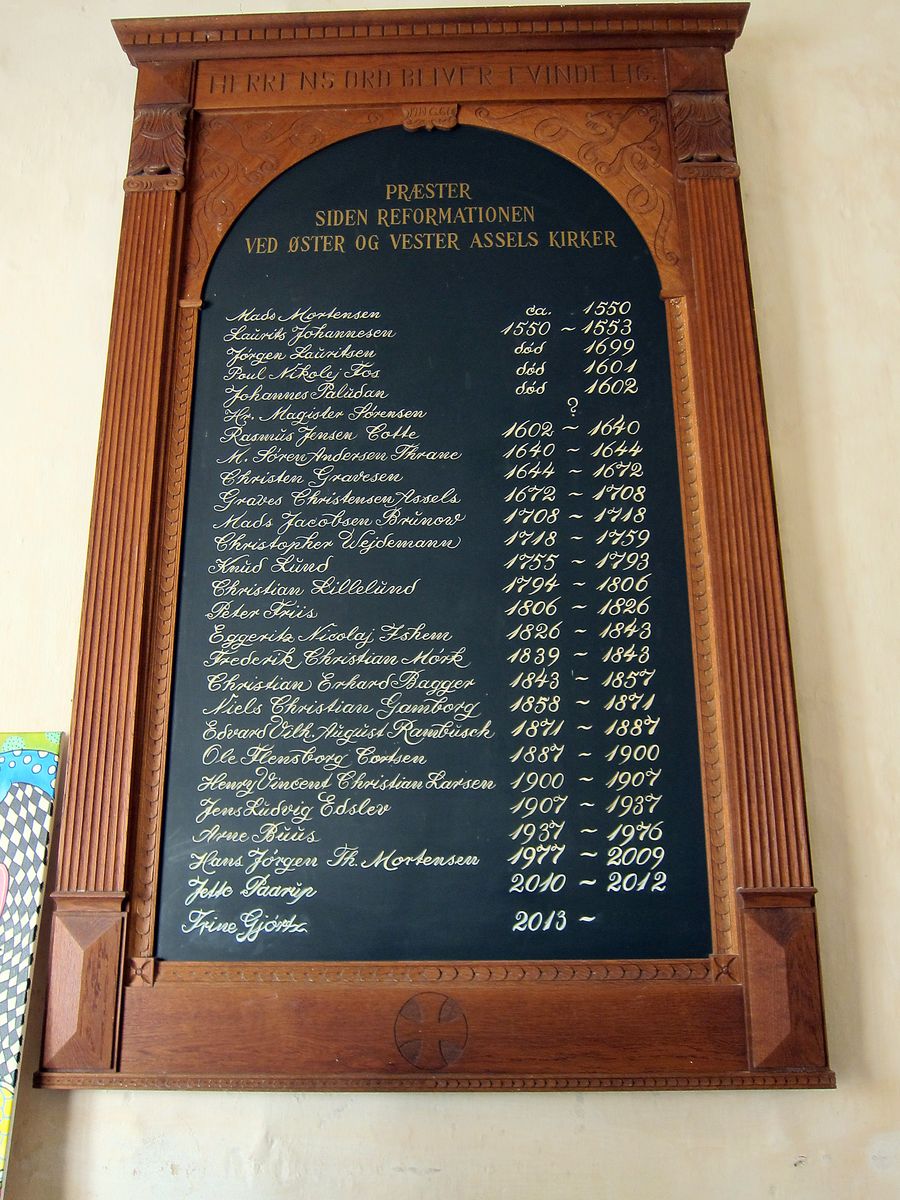 HERRENS ORD BLIVER EVINDELIG.
PRÆSTER
SIDEN REFORMATIONEN
VED ØSTER OG VESTER ASSELS KIRKER
Mads Mortensen ca. 1550
Laurits Johannesen 1550 ~ 1553
Jørgen Lauritsen død 1699
Poul Nikolej Fos død 1601
Johannes Paludan død 1602
Hr. Magister Sørensen ?
Rasmus Jensen Cotte 1602 ~ 1640
M. Søren Andersen Thrane 1640 ~ 1644
Christen Gravesen 1644 ~ 1672
Graves Christensen Assels 1672 ~ 1708
Mads Jacobsen Brunow 1708 ~ 1718
Christopher Wejdemann 1718 ~ 1759
Knud Lund 1755 ~ 1793
Christian Lillelund 1794 ~ 1806
Peter Friis 1806 ~ 1826
Eggeritz Nicolaj Fshem 1826 ~ 1843
Frederik Christian Mørk 1839 ~ 1843
Christian Erhard Bagger 1843 ~ 1857
Niels Christian Gamborg 1858 ~ 1871
Edvard Vilh. August Rambusch 1871 ~ 1887
Ole Flensborg Cortsen 1887 ~ 1900
Henry Vincent Christian Larsen 1900 ~ 1907
Jens Ludvig Edslev 1907 ~ 1937
Arne Buus 1937 ~ 1976
Hans Jørgen Th. Mortensen 1977 ~ 2009
Jette Paarup 2010 ~ 2012
Trine Gjørtz 2013 ~